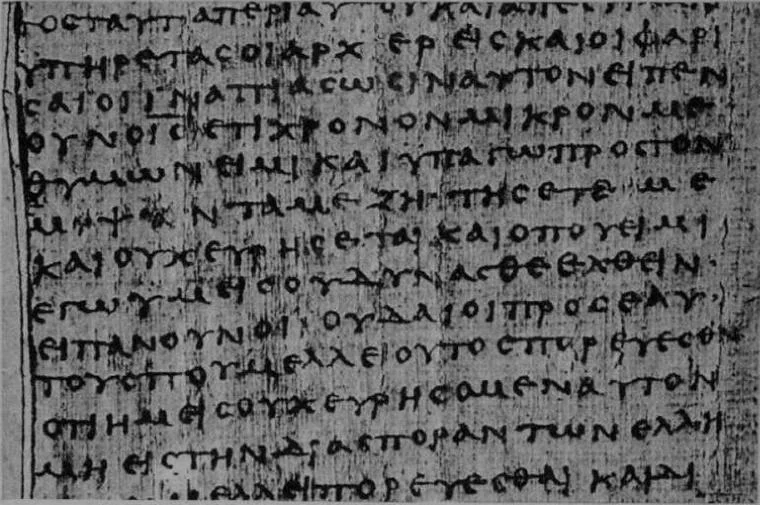 ΤΟϹΤΑΥΤΑΠΕΡΙΑΥΤΟΥΚΑΙΑΠΕϹ
ΥΠΗΡΕΤΑϹΟΙΑΡΧΕΡΕΙϹΚΑΙΟΙΦΑΡΙ
ϹΑΙΟΙΙΝΑΠΙΑϹΩϹΙΝΑΥΤΟΝΕΙΠΕΝ
ΟΥΝΟΙ̅Ϲ̅ΕΤΙΧΡΟΝΟΝΜΙΚΡΟΝΜΕ
ΘΥΜΩΝΕΙΜΙΚΑΙΥΠΑΓΩΠΡΟϹΤΟΝ
ΜΨΑΝΤΑΜΕΖΗΤΗϹΕΤΕΜΕ
ΚΑΙΟΥΧΕΥΡΗϹΕΤΑΙΚΑΙΟΠΟΥΕΙΜΙ
ΕΓΩΥΜΕΙϹΟΥΔΥΝΑϹΘΕΕΛΘΕΙΝ·
ΕΙΠΑΝΟΥΝΟΙΙΟΥΔΑΙΟΙΠΡΟϹΕΑΥ
ΤΟΥϹΠΟΥΜΕΛΛΕΙΟΥΤΟϹΠΟΡΕΥΕϹΘΑΙ
ΟΤΙΗΜΕΙϹΟΥΧΕΥΡΗϹΟΜΕΝΑΥΤΟΝ
ΜΗΕΙϹΤΗΝΔΙΑϹΠΟΡΑΝΤΩΝΕΛΛΗ
ΕΛΛΕΙΠΟΡΕΥΕϹΘΑΙΚΑΙΔΙ